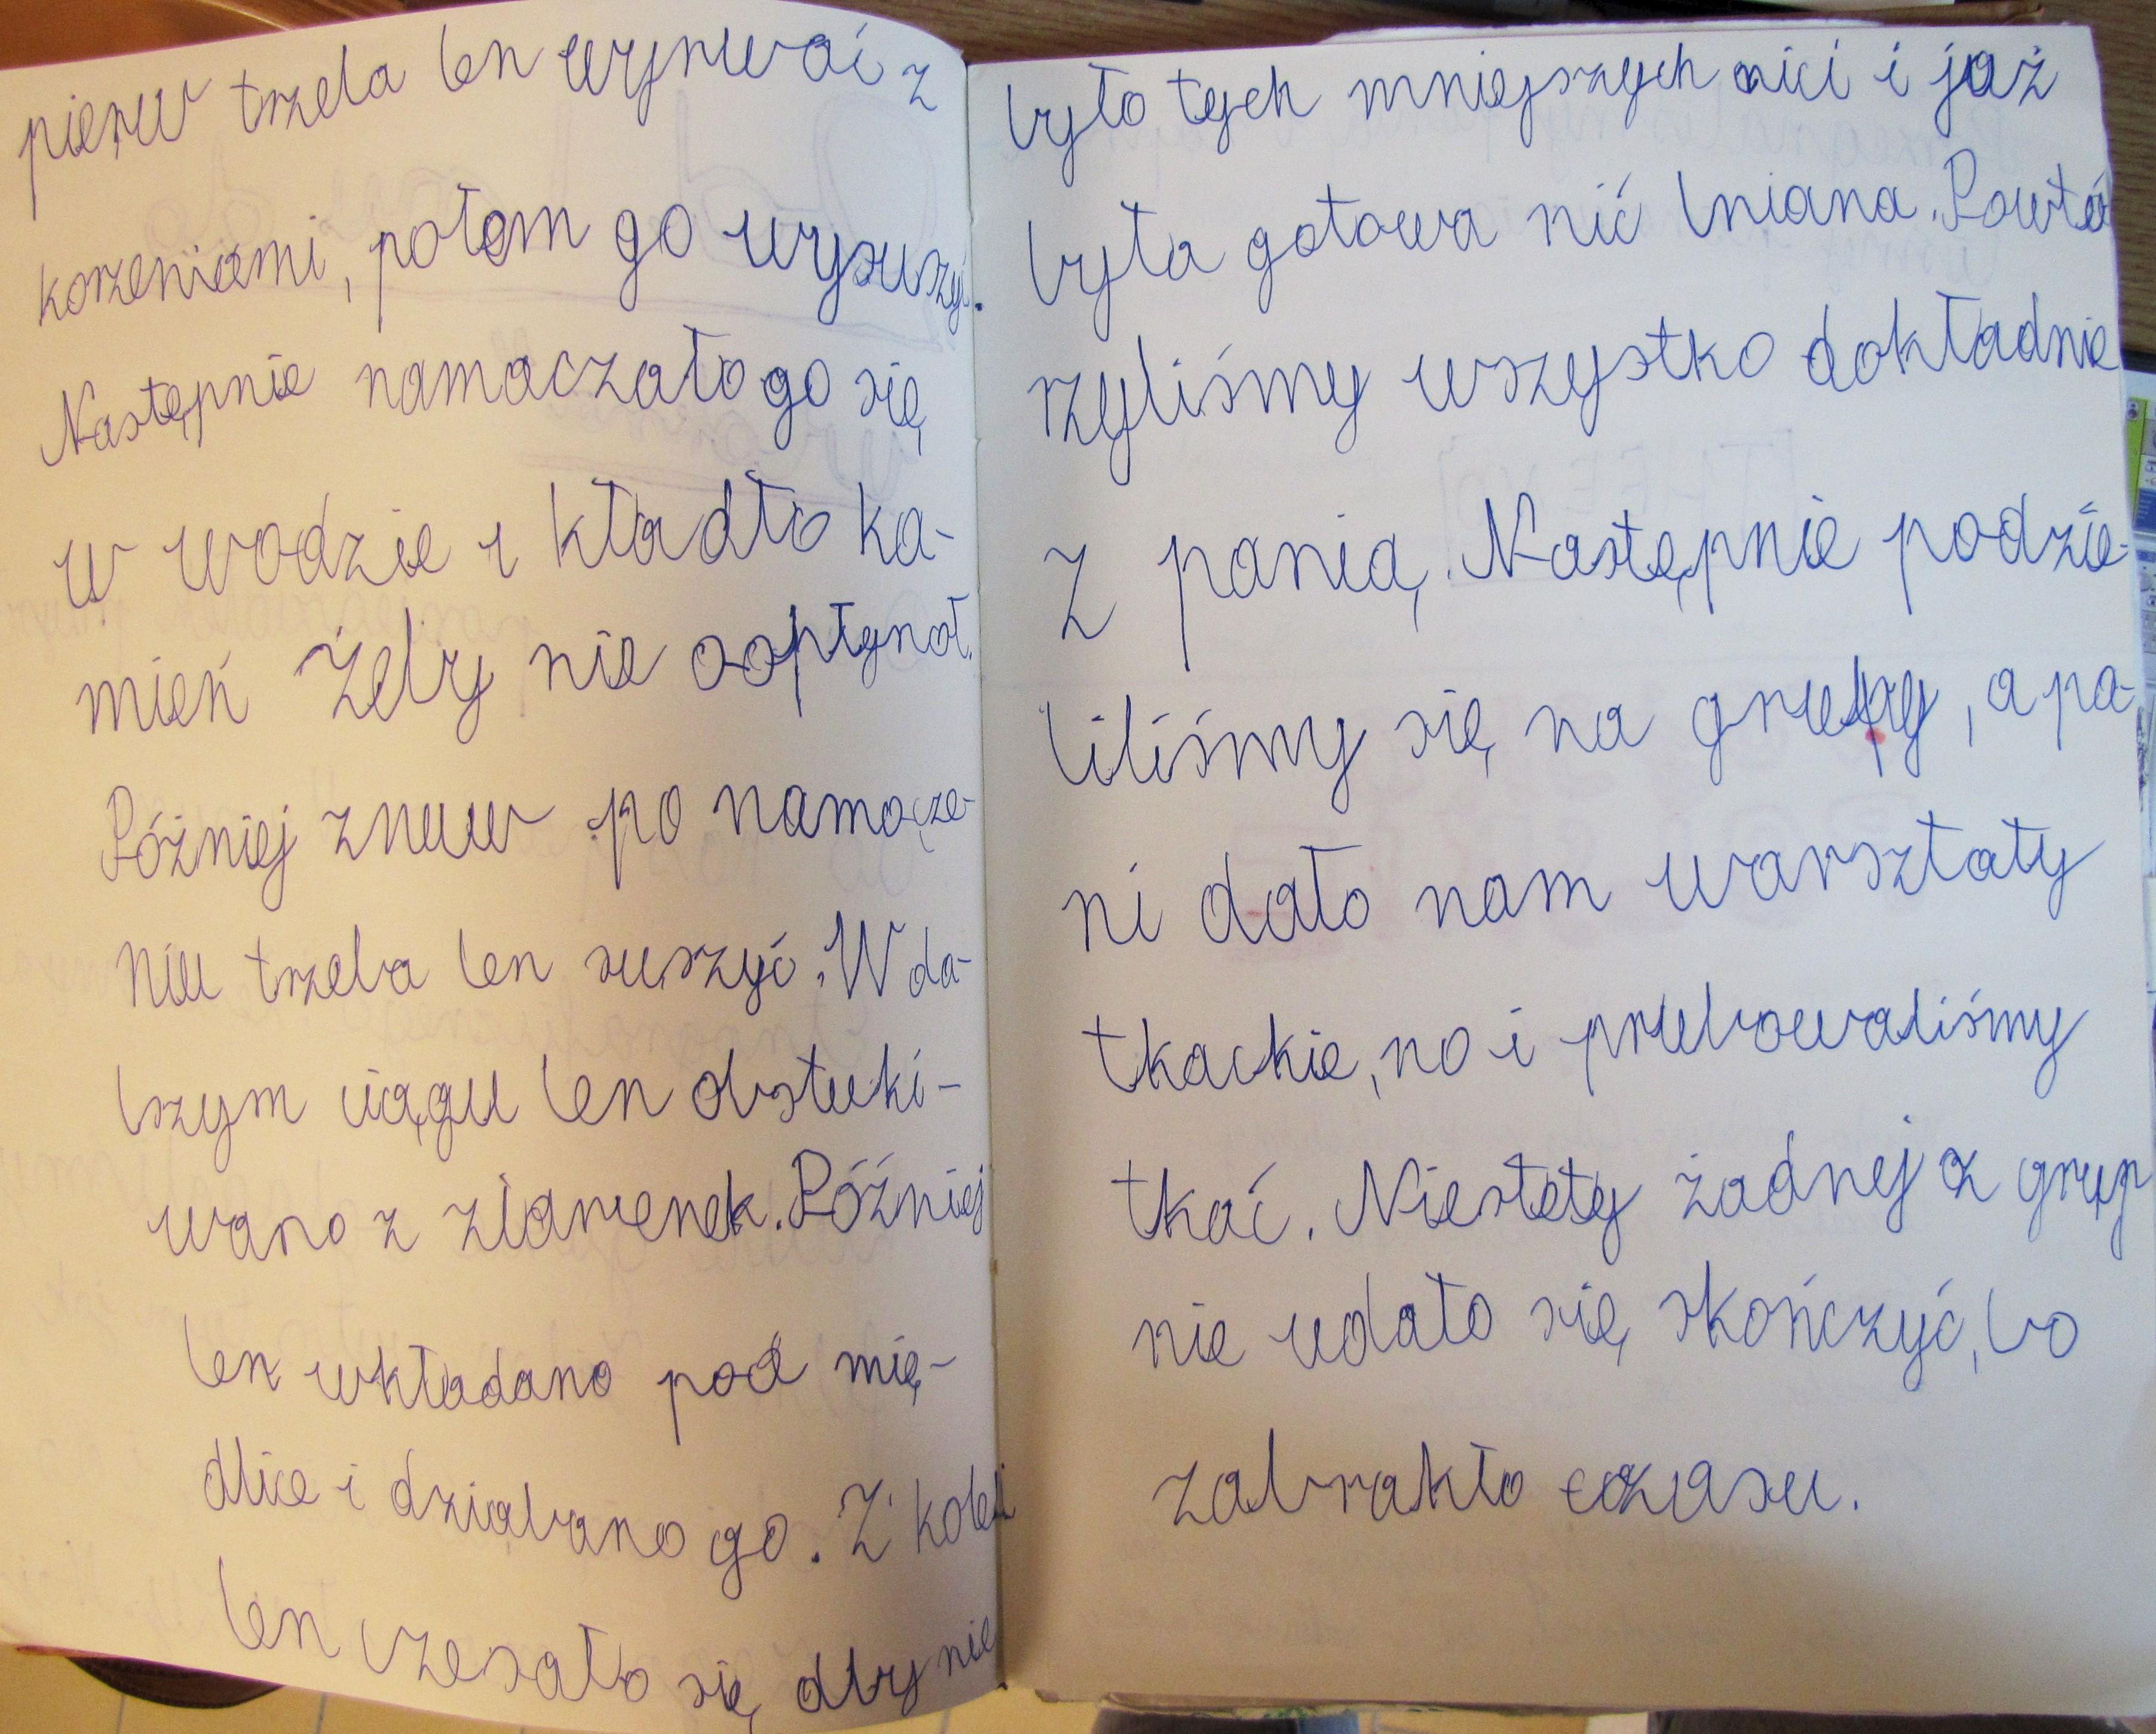 pierw trzeba len wyrwać z
korzeniami, potem go wysuszyć.
Następnie namaczało go się
w wodzie i kładło ka-
mień żeby nie odpłynoł.
Później znuw po namocze-
niu trzeba len suszyć. W da-
lszym ciągu len obstuki-
wano z ziarenek. Później
len wkładano pod mię-
dlice i dziabano go. Z kolei
len czesało się aby nie
było tych mniejszych nici i już
była gotowa nić lniana. Powtó
rzyliśmy wszystko dokładnie
z panią. Następnie podzie-
liliśmy się na grupy, a pa-
ni dało nam warsztaty
tkackie, no i prubowaliśmy
tkać. Niestety żadnej z grup
nie udało się skończyć, bo
zabrakło czasu.